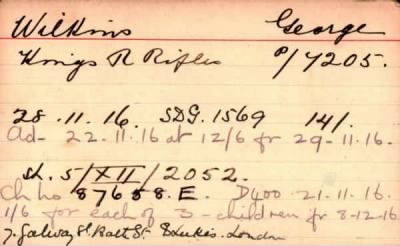 Wilkins George
Kings R Rifles P/7205.
28.11.16. SDG.1569 14/-
Ad- 22-11.16 at 12/6 fr 29-11-16.
Sh. 5/XII/2052.
Ch ho 87658.E. D400-21.11.16.
1/6 for each of 3-children fr 8-12-16
7. Galway St. Batt St. St Lukes. London